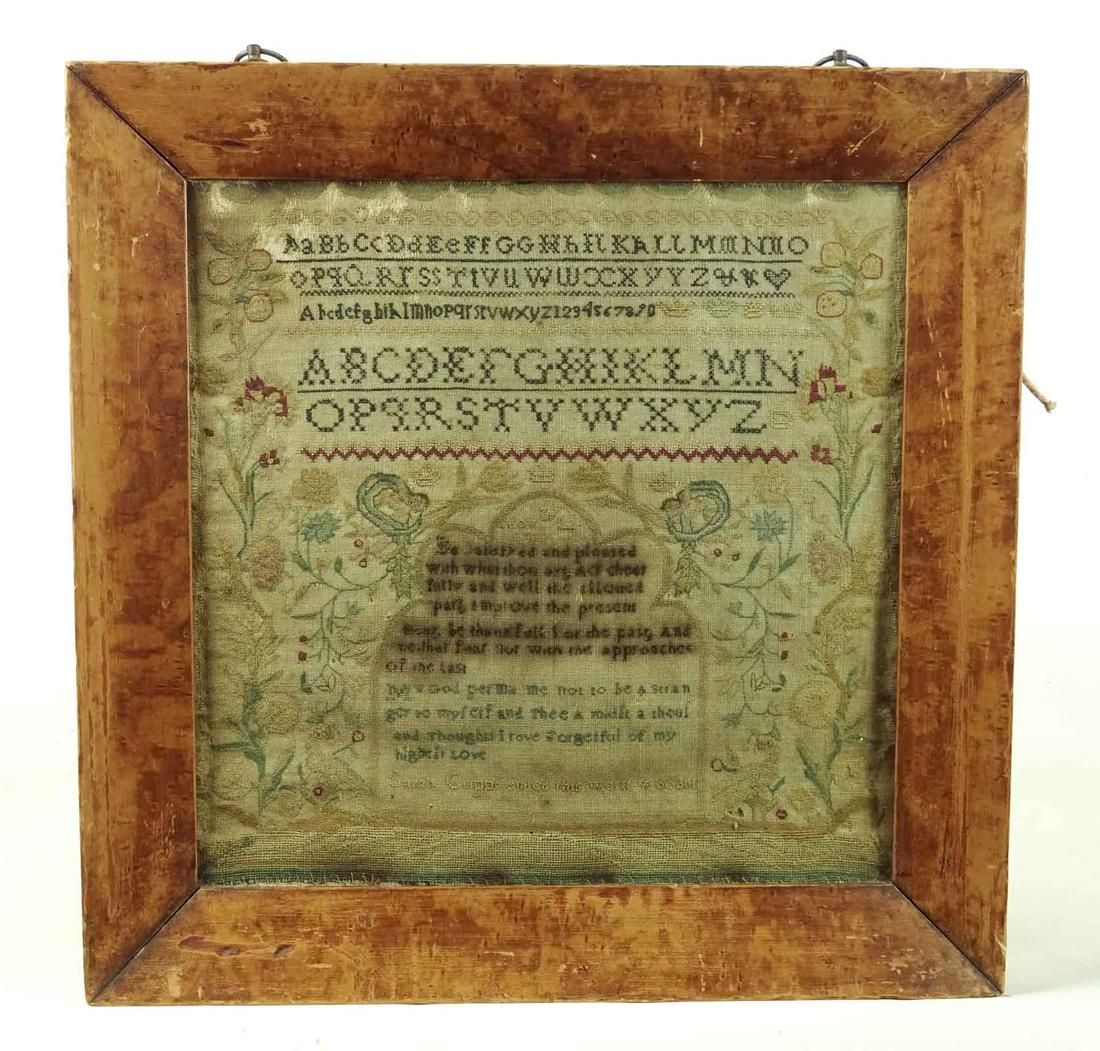 AaBbCcDdEeFfGGHhIIKkLLMmNnO
oPpQRrSsTtVuWwXxYyZ&
AbcdefghiklmnopqrstvwxyZ1234567890
ABCDEFGHIKLMN
OPQRSTVWXYZ
Be and pleased
with what thou art Act cheer
fully and well the allowed
part improve the present
hour be thankfull For the past And
neither fear nor wish the approaches
of the Last
me not to be a stran
ger to myself and Thee a midst a thous
and Thoughts I rove Forgetful of my
highest Love
this work